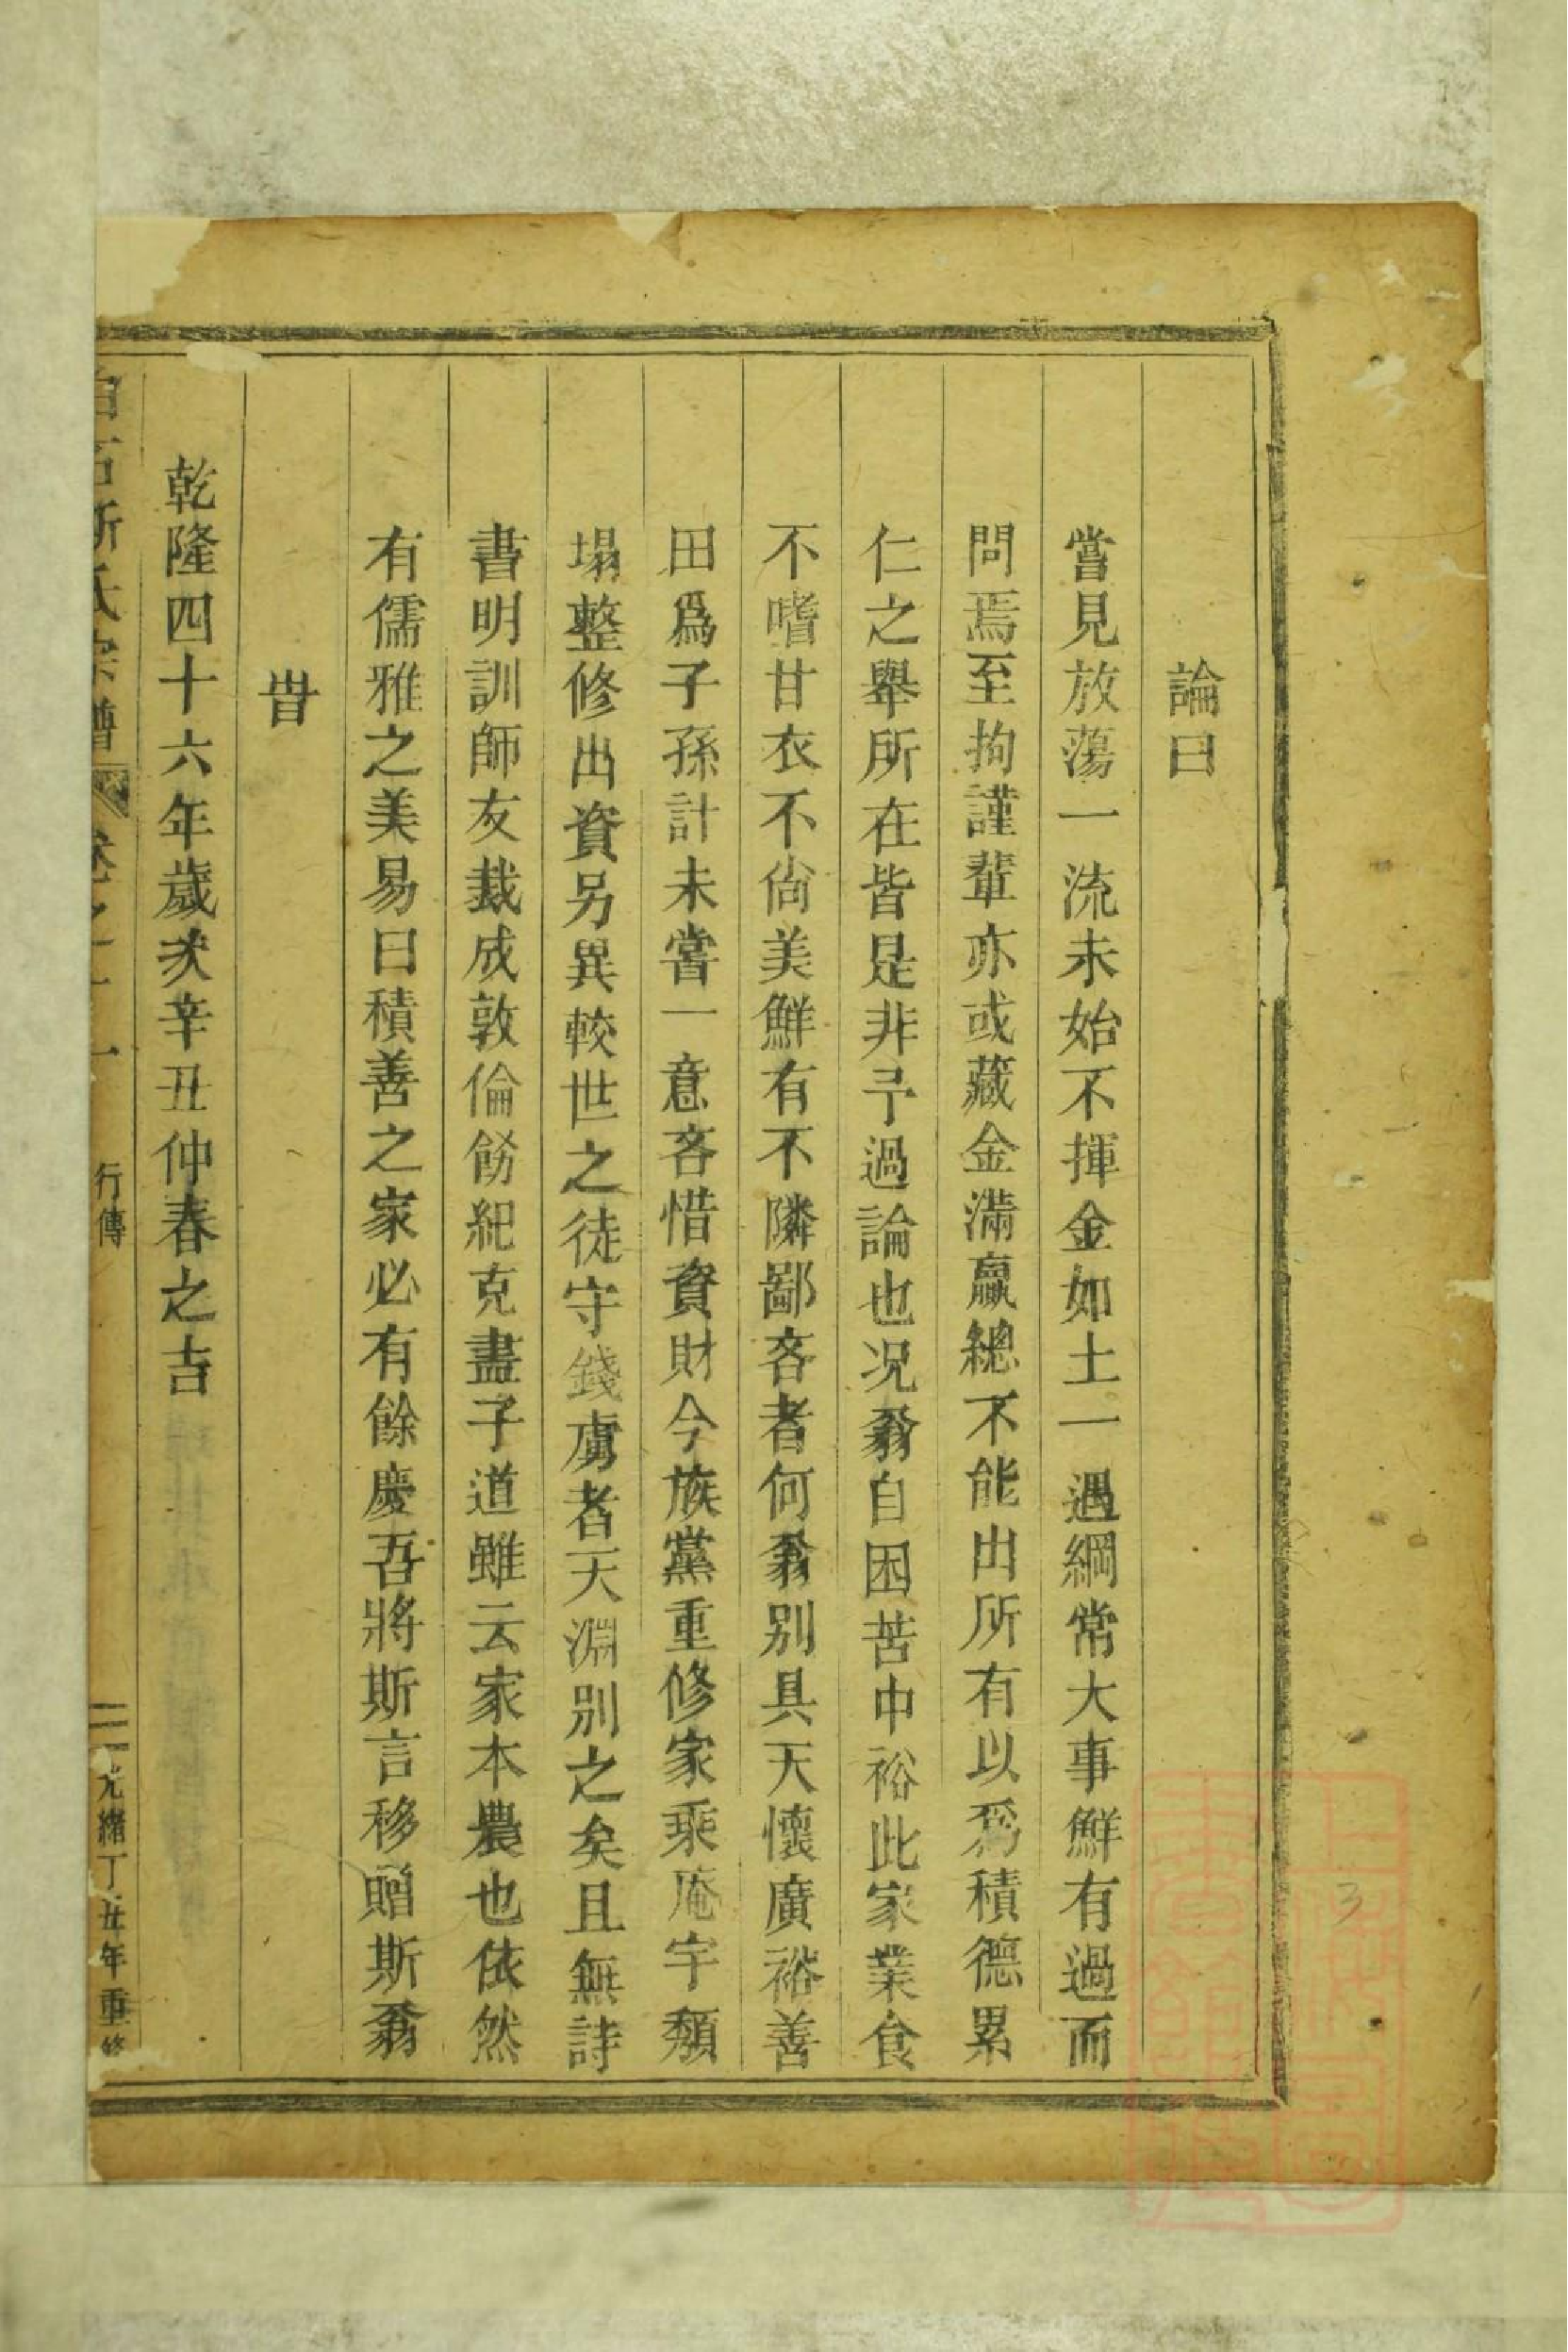 論曰
嘗見放蕩一流未始不揮金如土一遇綱常大事鮮有過而
問焉至拘謹輩亦或藏金滿贏總不能出所有以爲積德累
仁之舉所在皆是非予過論也况翁自困苦中裕此家業食
不嗜甘衣不尙美鮮有不隣鄙吝者何翁別具天懷廣裕善
田爲子孫計未嘗一意吝惜資財今族黨重修家乘庵宇頽
塌整修出資另異較世之徒守錢虜者天淵別之矣且無詩
書明訓師友裁成敦倫飭紀克盡子道雖云家本農也依然
有儒雅之美易曰積善之家必有餘慶吾將斯言移贈斯翁
旹
乾隆四十六年歲次辛丑仲春之吉
白石斯氏宗譜 卷之十一 行傳 光緖丁丑年重修